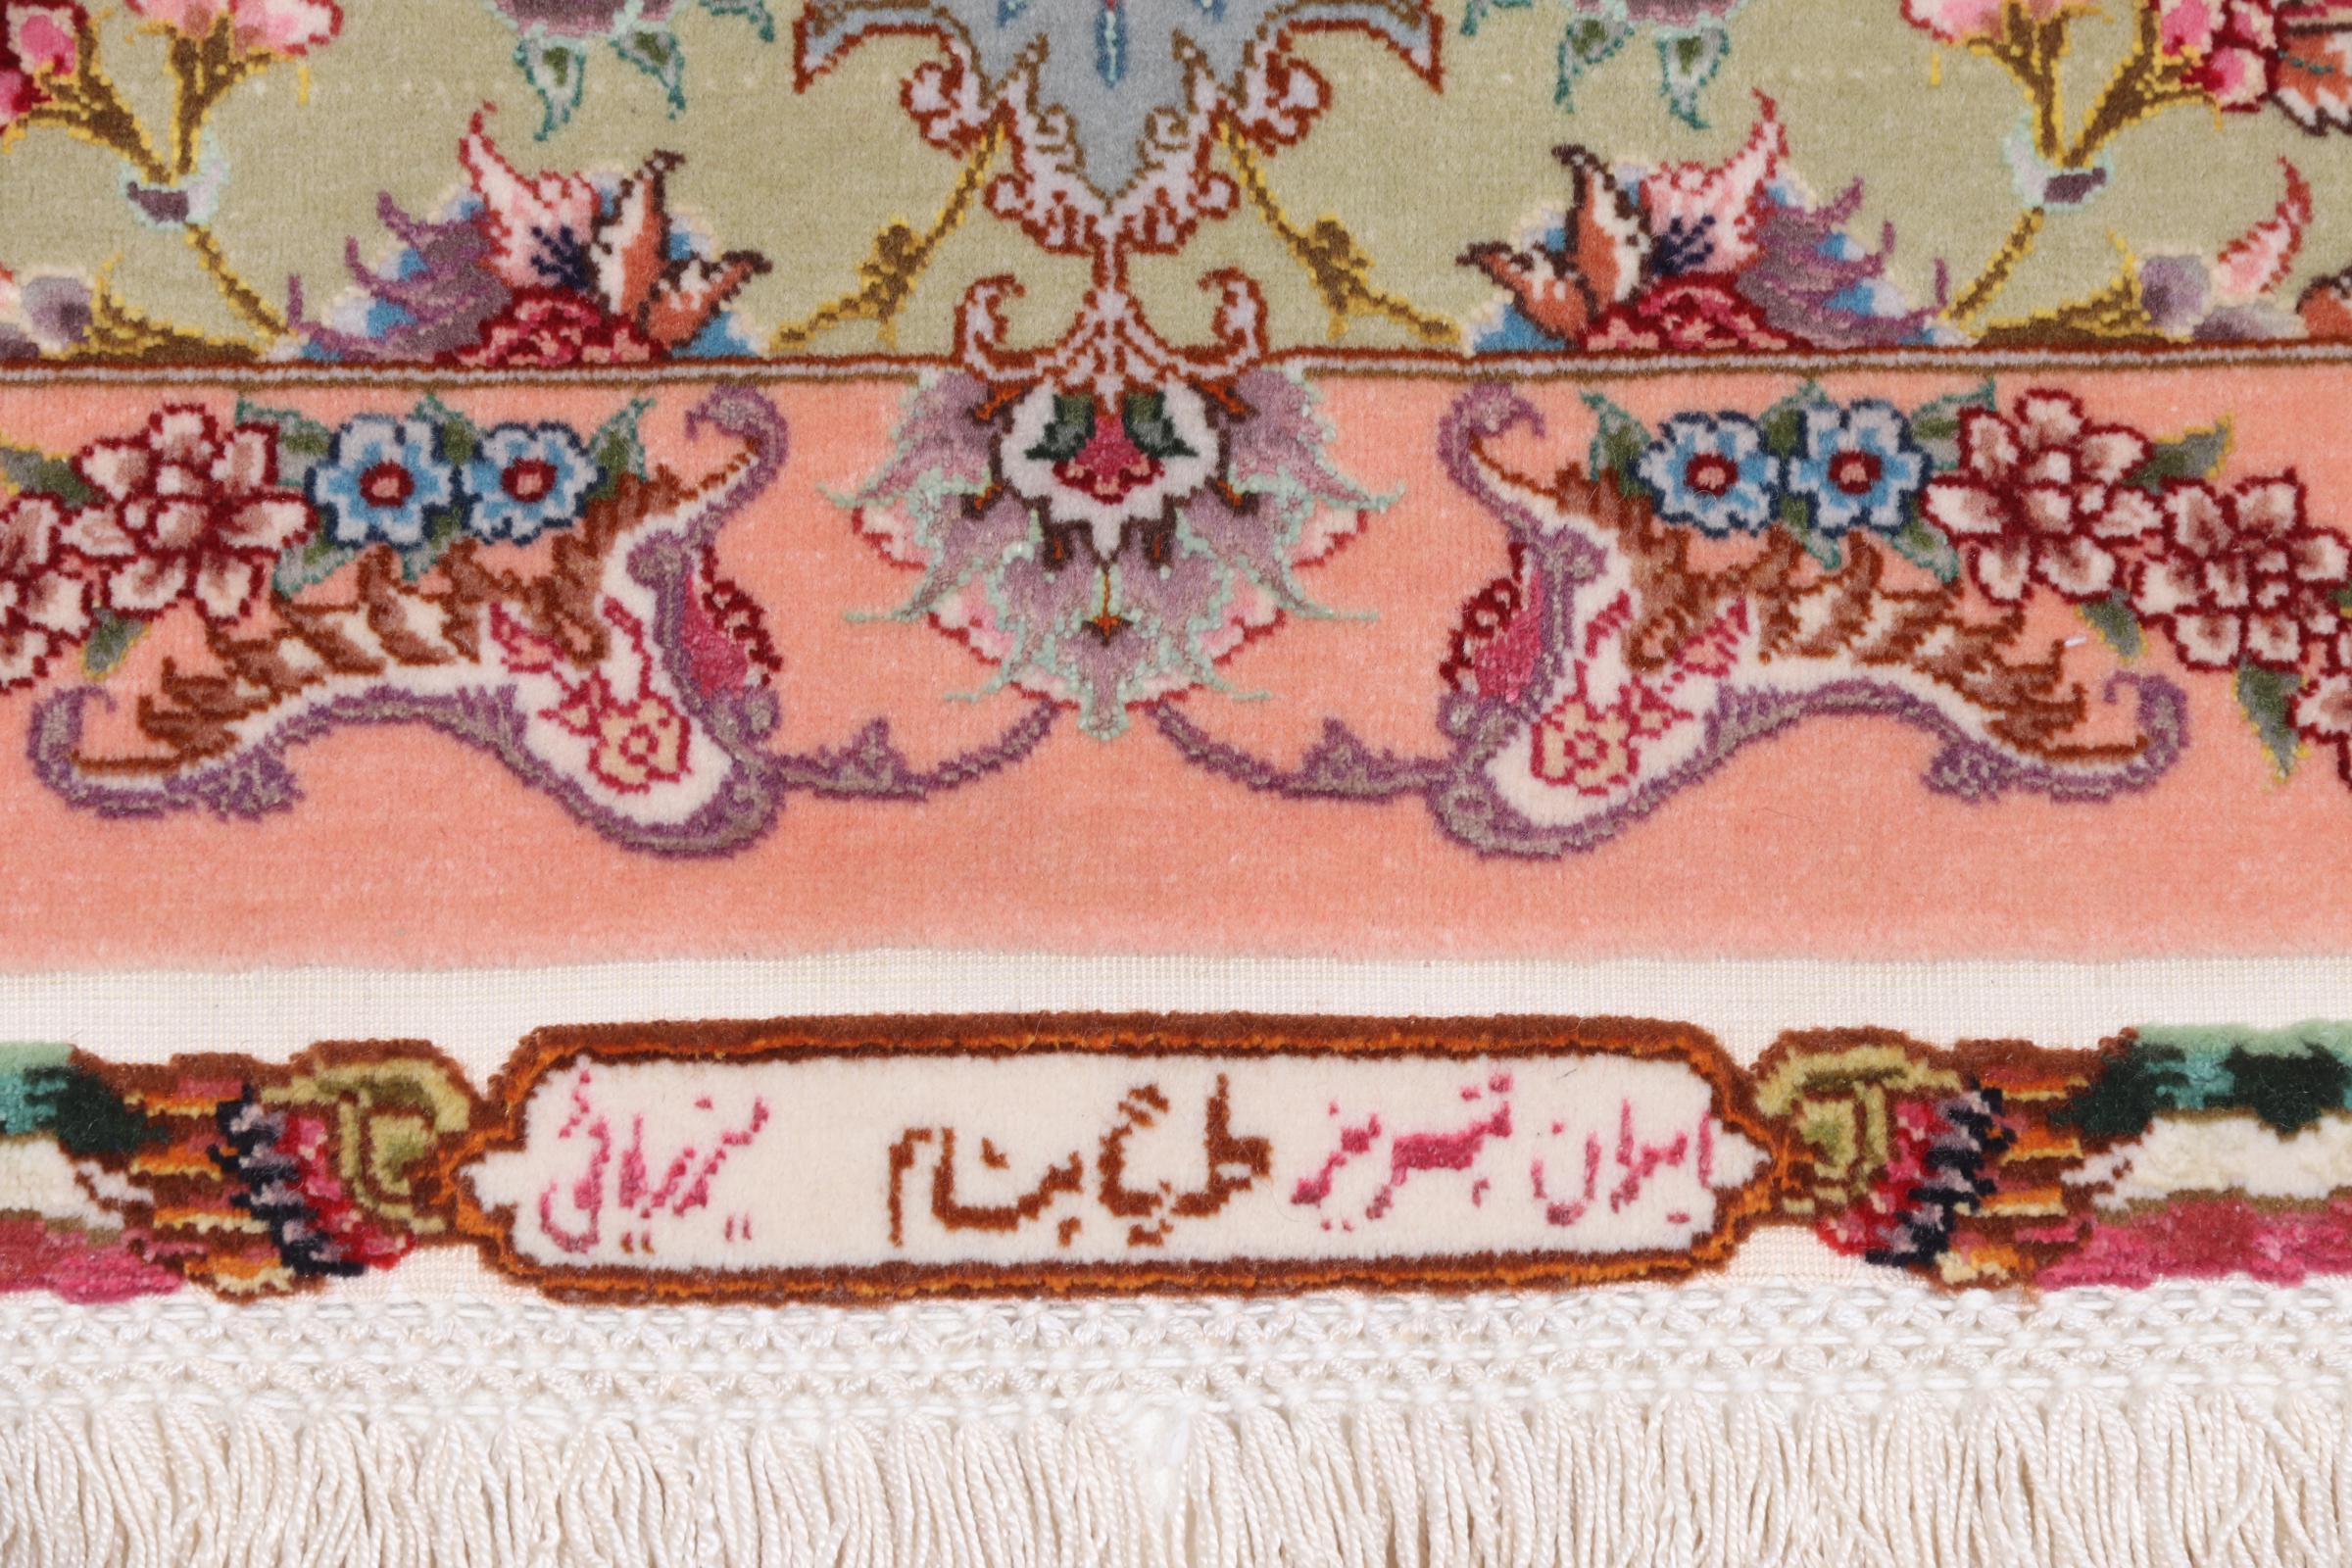 ایران تبریز طرح بنام میرزیائی